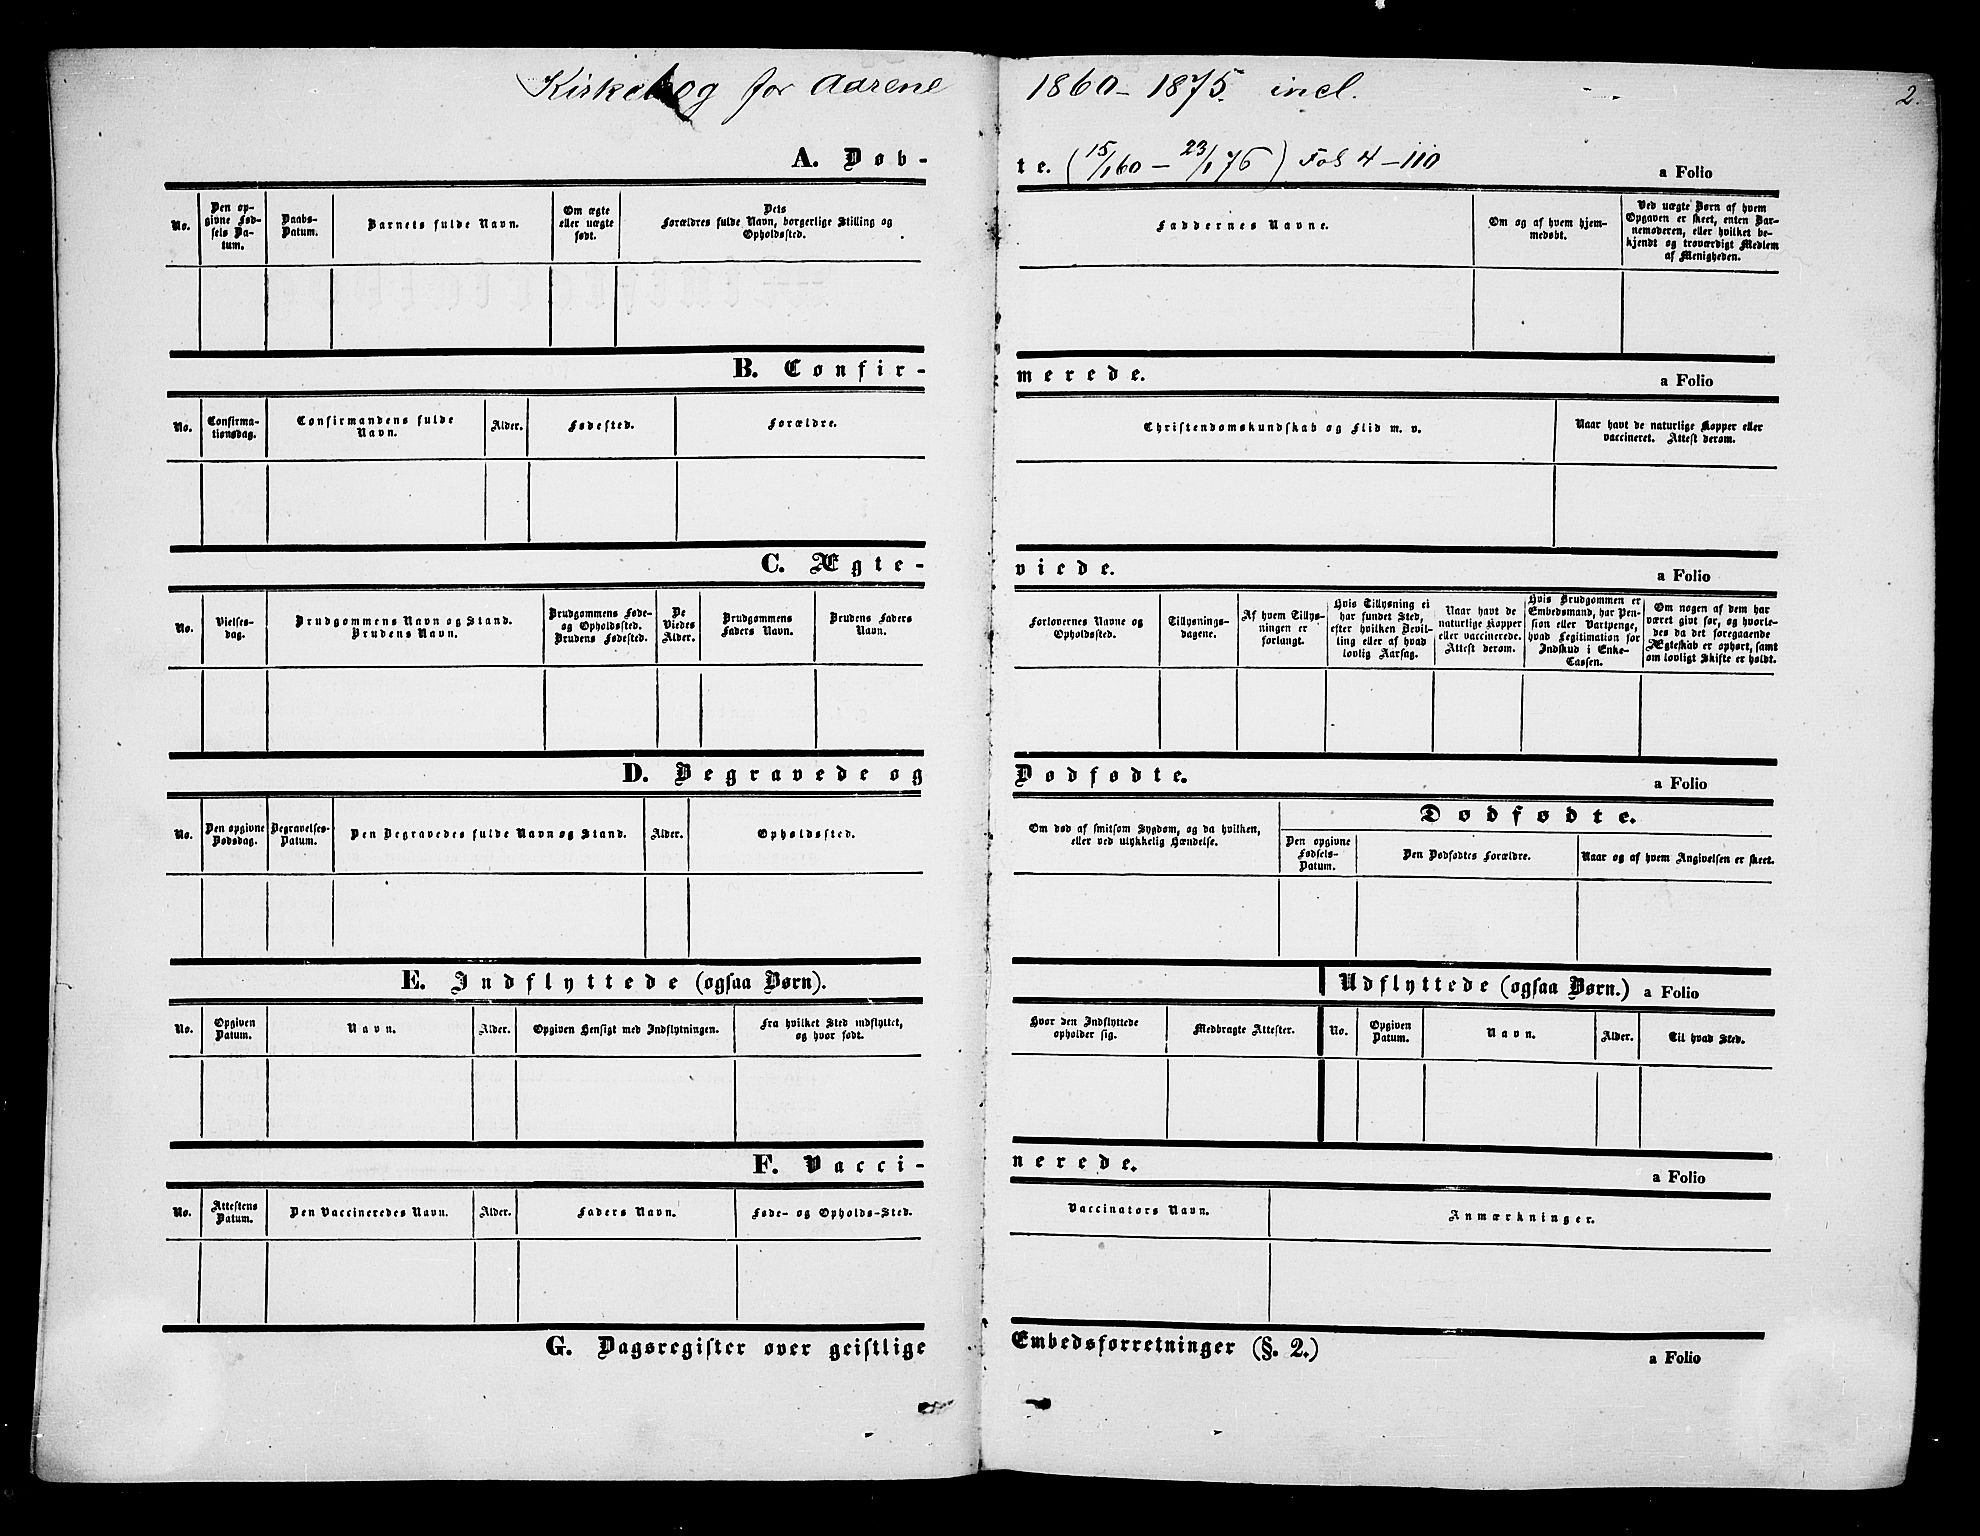 Kirkebog for Aarene 1860 - 1875. incl.
2.
A. Døb-te. (15/1 60 - 23/1 76) Fol 4-110 a Folio
No.
Den op-
givne Fød-
sels Da-
tum.
Daabs-
Datum.
Barnets fulde Navn.
Om ægte
eller uægte
født.
Dets
Forældres fulde Navn, borgerlige Stilling og
Opholdssted.
Faddernes Navne.
Om og af hvem hjem-
medøbt.
Ved uægte Børn af hvem
Opgaven er skeet, enten Bar-
nemoderen, eller hvilket be-
kjendt og troværdigt Medlem
af Menigheden.
B. Confir-merede. a Folio
No.
Confirma-
tionsdag.
Confirmandens fulde
Navn.
Alder.
Fødested.
Forældre.
Christendomskundskab og Flid m. v.
Naar havt de naturlige Kopper eller
vaccineret. Attest derom.
C. Ægte-viede. a Folio
No.
Vielses-
dag.
Brudgommens Navn og Stand.
Brudens Navn.
Brudgommens Føde-
og Opholdssted.
Brudens Fødested.
De
Viedes
Alder.
Brudgommens
Faders Navn.
Brudens Faders
Navn.
Forlovernes Navne og
Opholdssted.
Tillysnings-
dagene.
Af hvem Tillys-
ningen er
forlangt.
Hvis Tillysning ei
har fundet Sted,
efter hvilken Bevil-
ling eller af hvad
lovlig Aarsag.
Naar havt de
naturlige Kopper
eller vaccinerede.
Attest derom.
Hvis Brudgommen er
Embedsmand, har Pen-
sion eller Vartpenge,
hvad Legitimation for
Indskud i Enke-
Cassen.
Om nogen af dem har
været gift før, og hvorle-
des da det foregaaende
Ægteskab er ophørt, samt
om lovligt Skifte er holdt.
D. Begravede og Dødfødte. a Folio
No.
Den opgivne
Dødsdag.
Begravelses-
Datum.
Den Begravedes fulde Navn og Stand.
Alder.
Opholdssted.
Om død af smitsom Sygdom, og da hvilken,
eller ved ulykkelig Hændelse.
Dødfødte.
Den opgivne
Fødsels-
Datum.
Den Dødfødtes Forældre.
Naar og af hvem Angivelsen er skeet.
E. Indflyttede (ogsaa Børn).
Udflyttede (ogsaa Børn.) a Folio
No.
Opgiven
Datum.
Navn.
Alder.
Opgiven Hensigt med Indflytningen.
Fra hvilket Sted indflyttet,
og hvor født.
Hvor den Indflyttede
opholder sig.
Medbragte Attester.
No.
Opgiven
Datum.
Navn.
Alder.
Til hvad Sted.
F. Vacci-nerede. a Folio
No.
Attestens
Datum.
Den Vaccineredes Navn.
Alder.
Faders Navn.
Føde- og Opholds-Sted.
Vaccinators Navn.
Anmærkninger.
G. Dagsregister over geistlige Embedsforretninger (§. 2.) a Folio